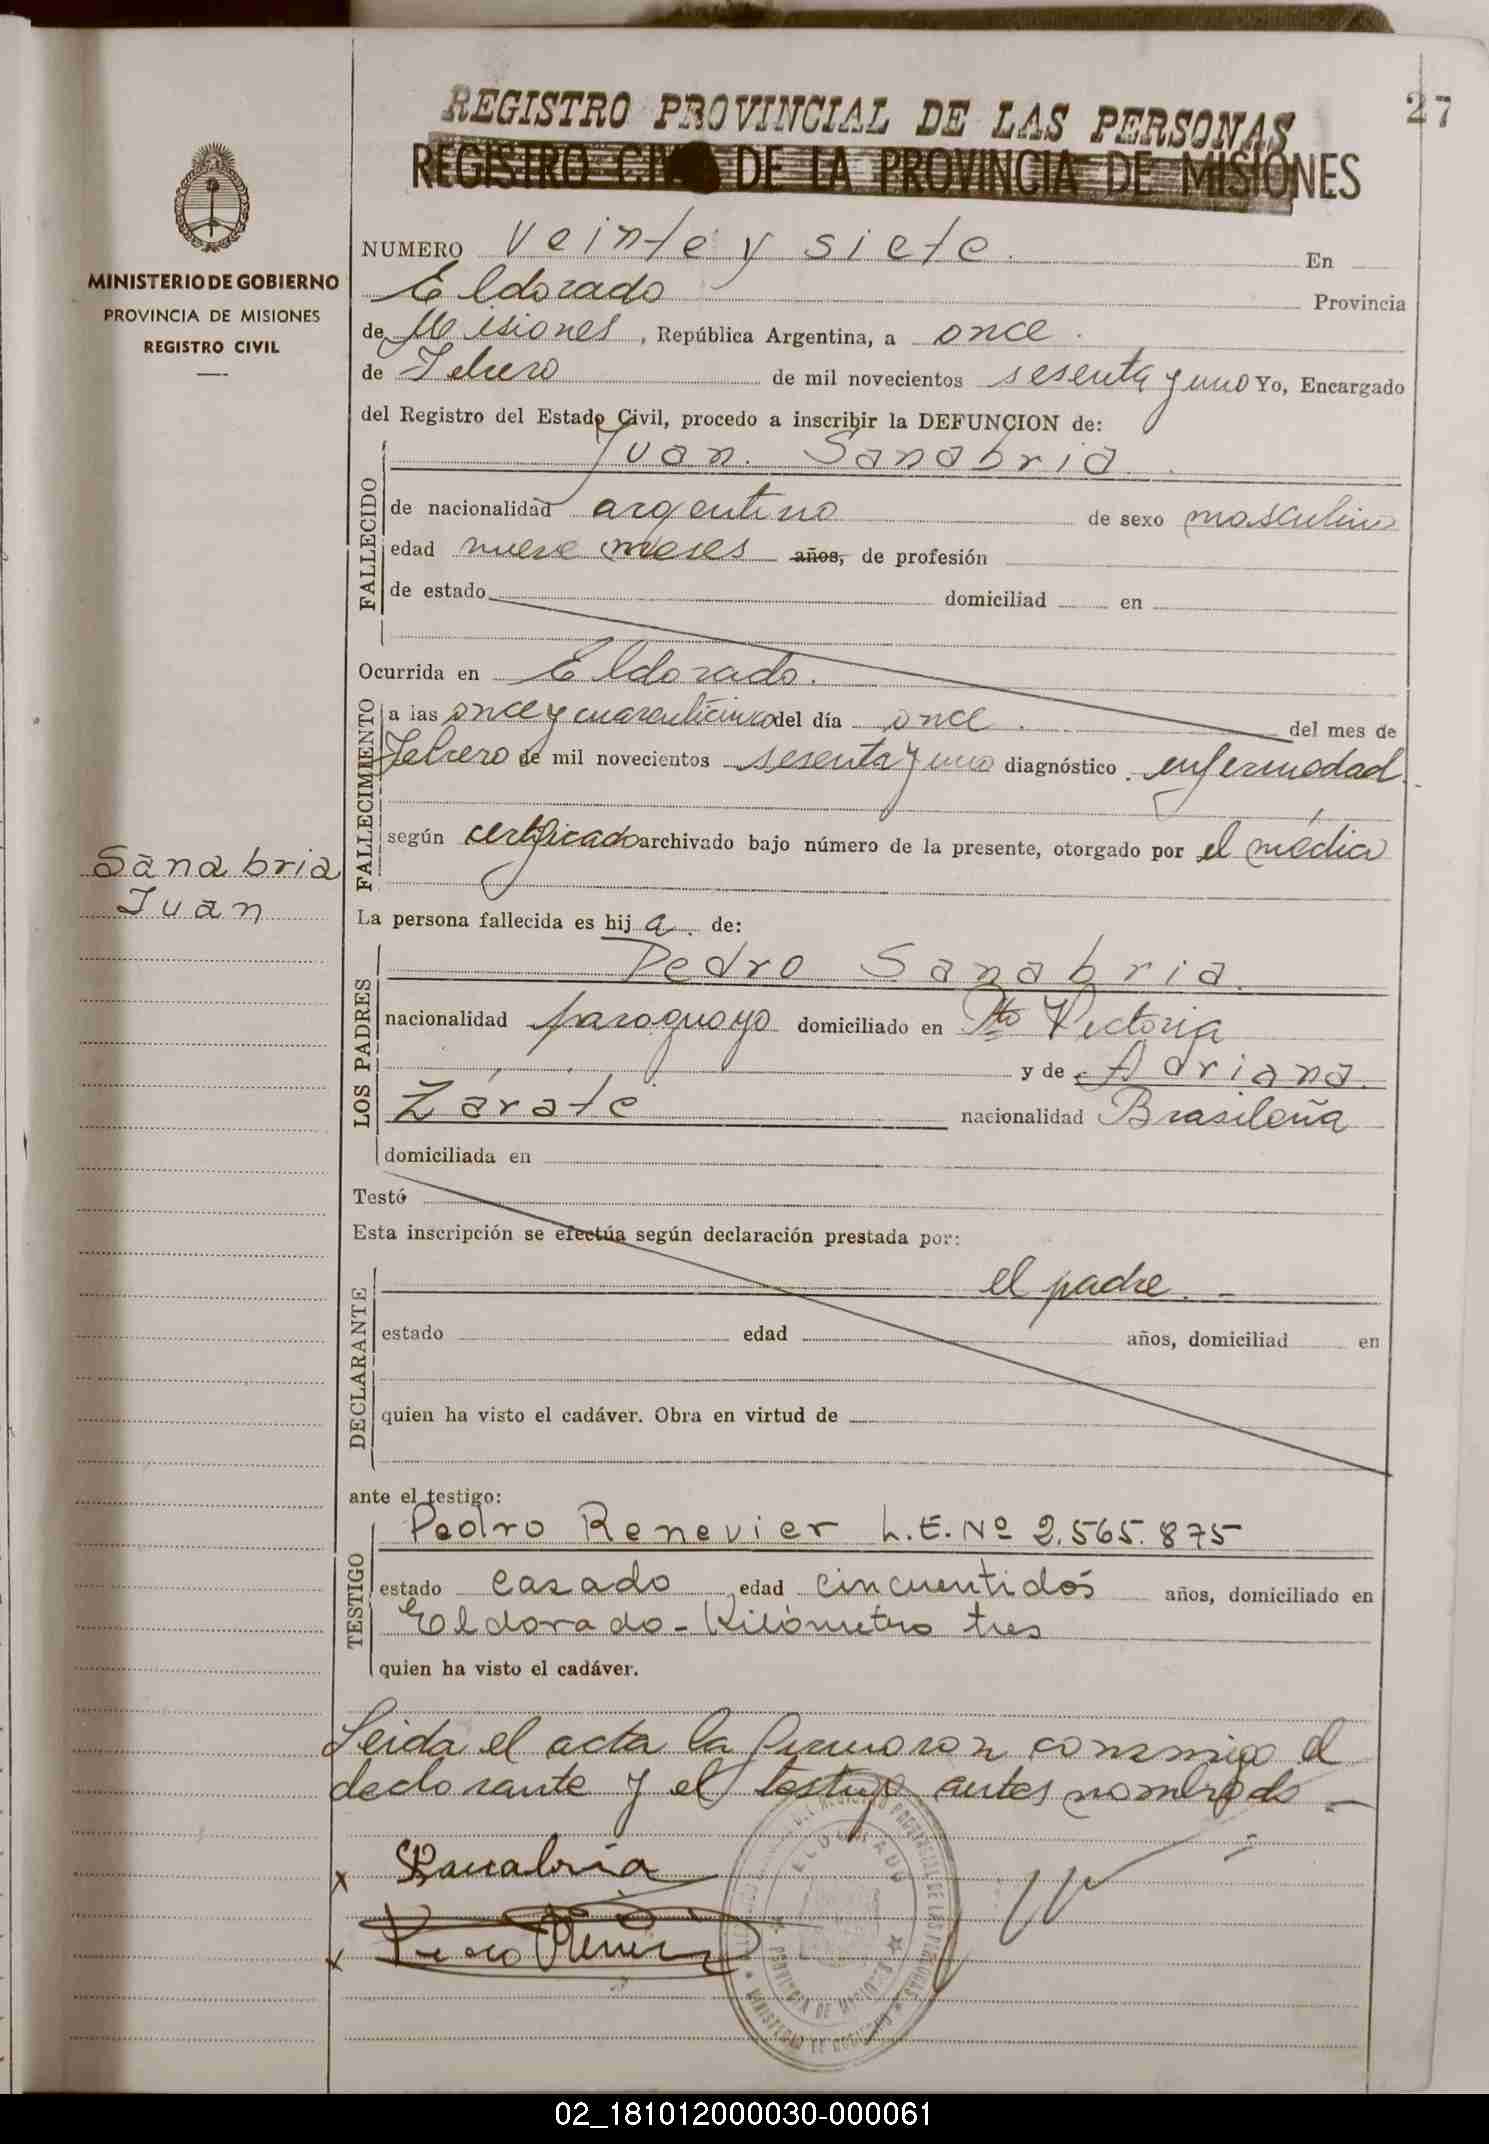 27
REGISTRO PROVINCIAL DE LAS PERSONAS
REGISTRO CIVIL DE LA PROVINCIA DE MISIONES
MINISTERIO DE GOBIERNO
PROVINCIA DE MISIONES
REGISTRO CIVIL
NUMERO veinte y siete. En
Eldorado Provincia
de Misiones, República Argentina, a once.
de Febrero de mil novecientos sesenta y uno Yo, Encargado
del Registro del Estado Civil, procedo a inscribir la DEFUNCION de:
FALLECIDO
Juan. Sanabria.
de nacionalidad argentino de sexo masculino
edad nueve meses años, de profesión
de estado domiciliad en
Ocurrida en Eldorado.
FALLECIMIENTO
a las once y cuarenticinco del día once. del mes de
Febrero de mil novecientos sesenta y uno diagnóstico enfermedad.
según certificado archivado bajo número de la presente, otorgado por el médico
Sanabria
Juan
La persona fallecida es hij a. de:
LOS PADRES
Pedro Sanabria.
nacionalidad paraguayo domiciliado en Pto Victoria
y de Adriana.
Zárate nacionalidad Brasileña
domiciliada en
Testó
Esta inscripción se efectúa según declaración prestada por:
DECLARANTE
el padre. -
estado edad años, domiciliad en
quien ha visto el cadáver. Obra en virtud de
ante el testigo:
TESTIGO
Pedro Renevier L.E. Nº 2.565.875
estado casado edad cincuentidós años, domiciliado en
Eldorado - Kilómetro tres
quien ha visto el cadáver.
Leida el acta la firmaron conmigo el
declarante y el testigo antes nombrado -
x Sanabria
x Pedro Renevier
ELDORADO
PROVINCIA DE MISIONES
MINISTERIO DE GOBIERNO
02_181012000030-000061